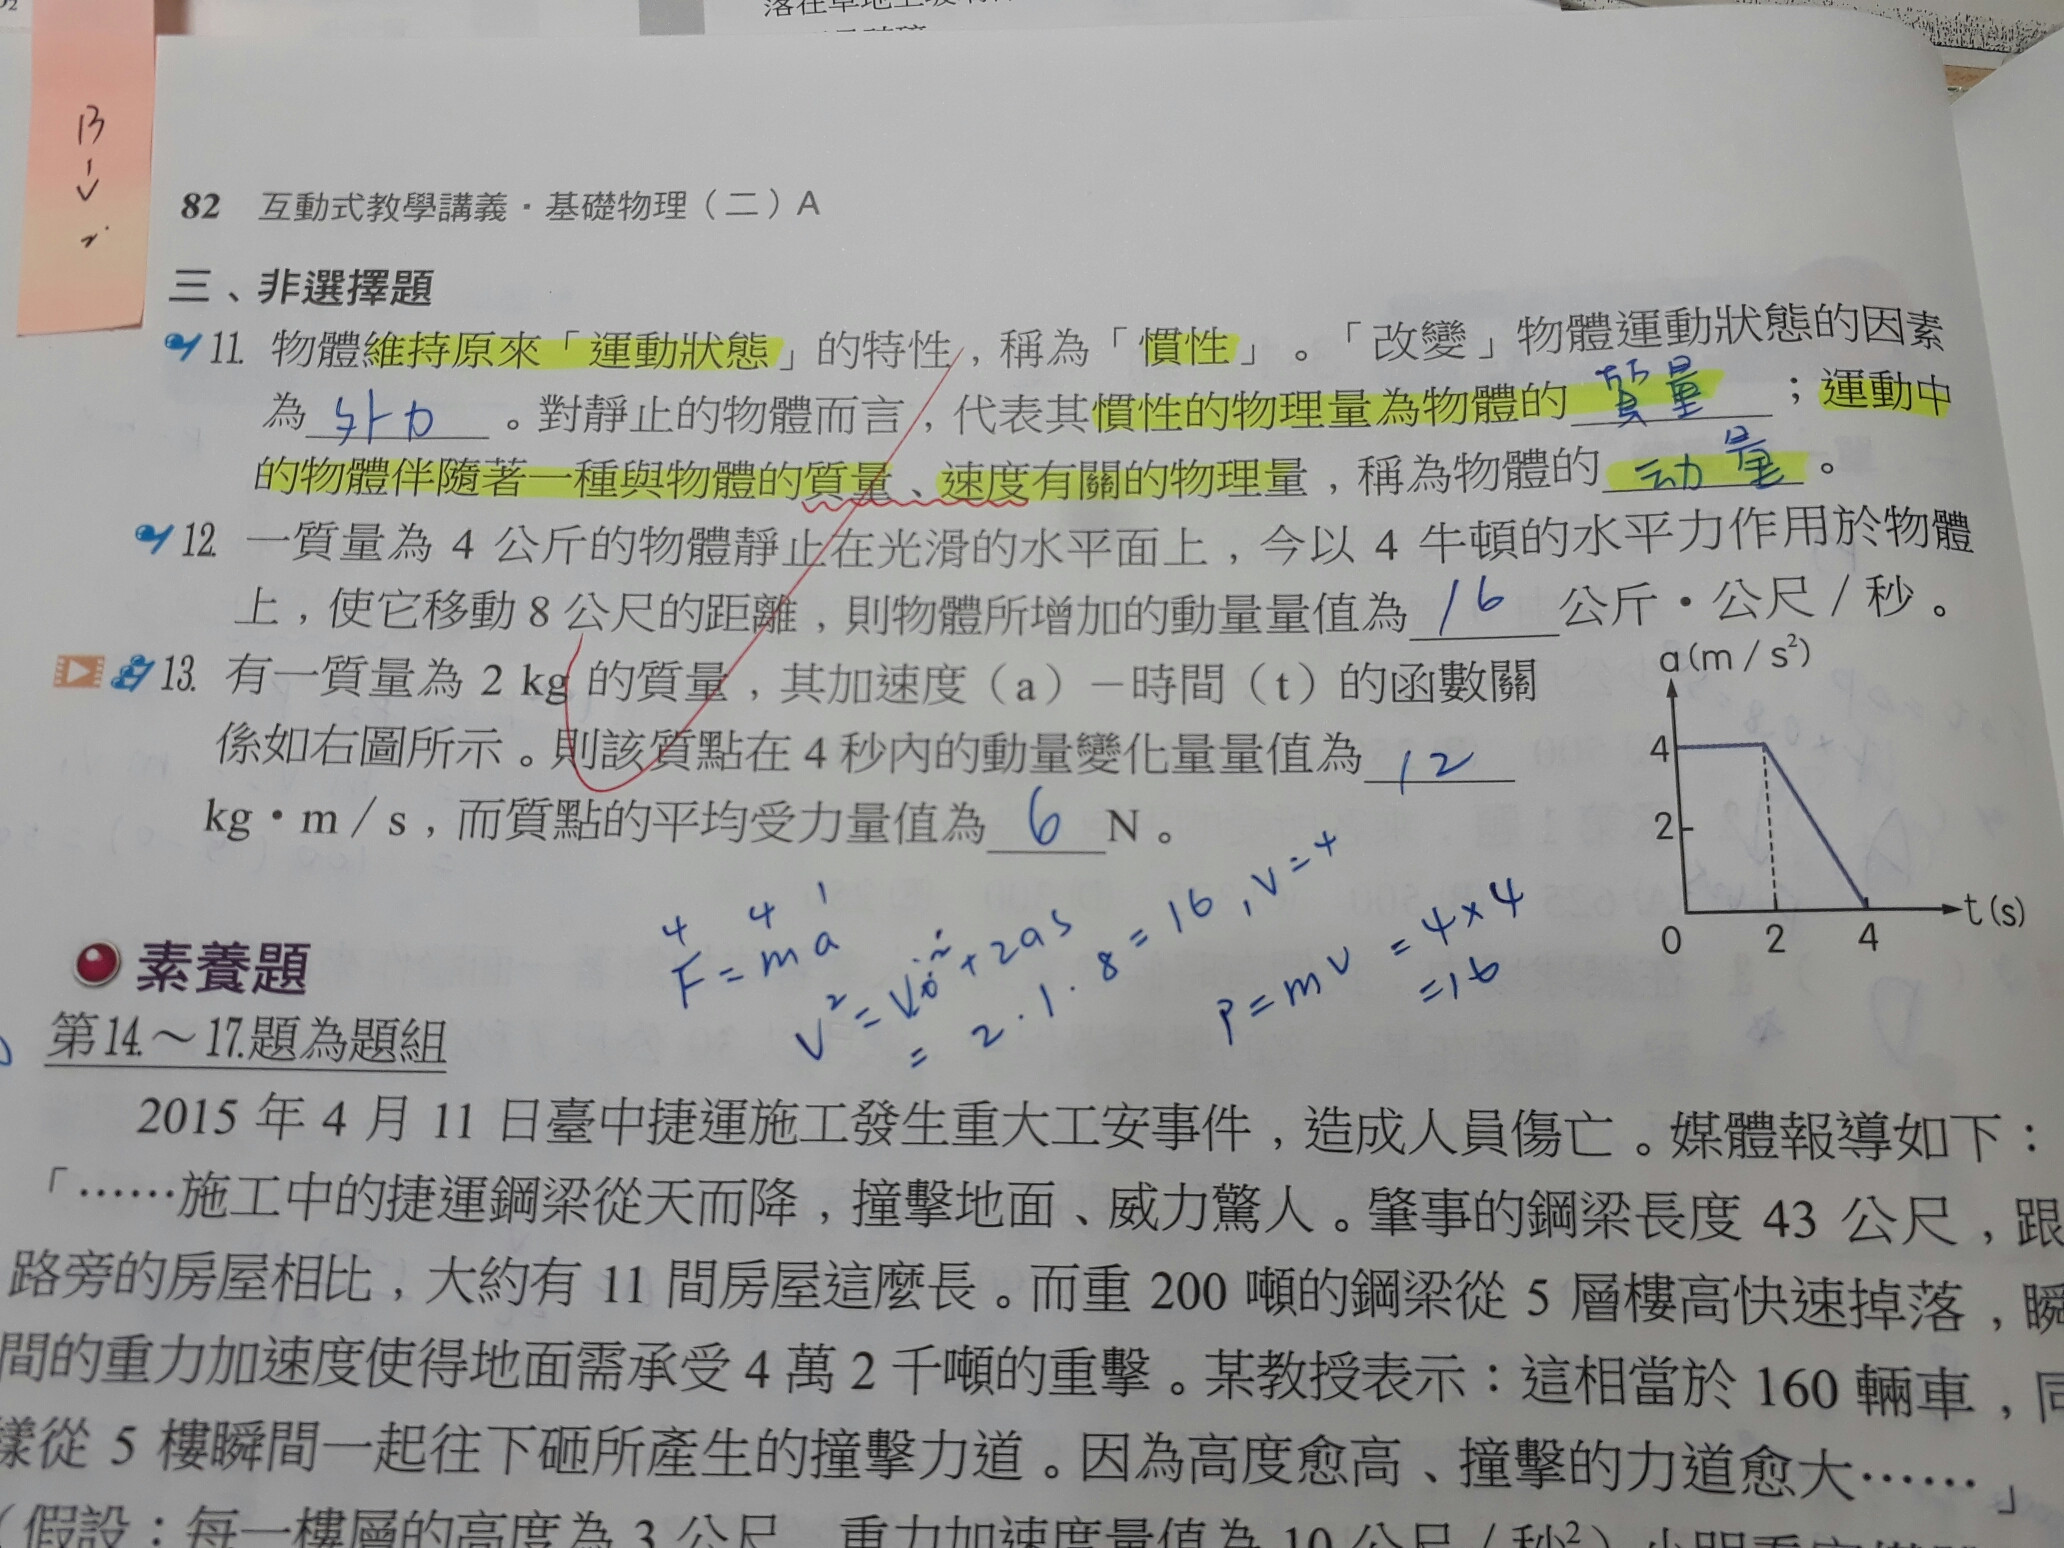 落在草地上
B
↓
82 互動式教學講義·基礎物理(二)A
三、非選擇題
11. 物體維持原來「運動狀態」的特性,稱為「慣性」。「改變」物體運動狀態的因素
為外力。對靜止的物體而言,代表其慣性的物理量為物體的質量;運動中
的物體伴隨著一種與物體的質量、速度有關的物理量,稱為物體的动量。
12. 一質量為 4 公斤的物體靜止在光滑的水平面上,今以 4 牛頓的水平力作用於物體
上,使它移動 8 公尺的距離,則物體所增加的動量量值為 16 公斤·公尺/秒。
13. 有一質量為 2 kg 的質量,其加速度(a)-時間(t)的函數關
係如右圖所示。則該質點在 4 秒內的動量變化量量值為 12
kg·m/s,而質點的平均受力量值為 6 N。
a(m/s²)
4
2
0 2 4 t(s)
4 4 1
F=ma
V²=V₀²+2as
=2·1·8=16,V=4
P=mV=4×4
=16
素養題
第14.~17.題為題組
2015 年 4 月 11 日臺中捷運施工發生重大工安事件,造成人員傷亡。媒體報導如下:
「……施工中的捷運鋼梁從天而降,撞擊地面、威力驚人。肇事的鋼梁長度 43 公尺,跟
路旁的房屋相比,大約有 11 間房屋這麼長。而重 200 噸的鋼梁從 5 層樓高快速掉落,瞬
間的重力加速度使得地面需承受 4 萬 2 千噸的重擊。某教授表示:這相當於 160 輛車,同
樣從 5 樓瞬間一起往下砸所產生的撞擊力道。因為高度愈高、撞擊的力道愈大……」
(假設:每一樓層的高度為 3 公尺,重力加速度量值為 10 公尺/秒²)